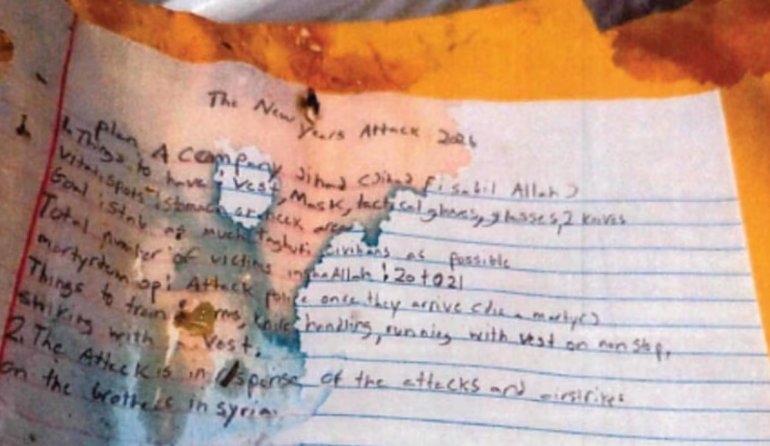 The New Years Attack 2026
Plan A company Jihad (Jihad fi sabil Allah)
1. Things to have: Vest, Mask, tactical gloves, glasses, 2 knives
Vital spots: stomach or neck area
Goal: Stab as much civilians as possible
Total number of victims inshaAllah: 20 to 21
martyrdom op: Attack police once they arrive (die a martyr)
Things to train: knife handling, running with vest on non stop,
striking with vest.
2. The Attack is in of the attacks and airstrikes
on the brothers in syria.